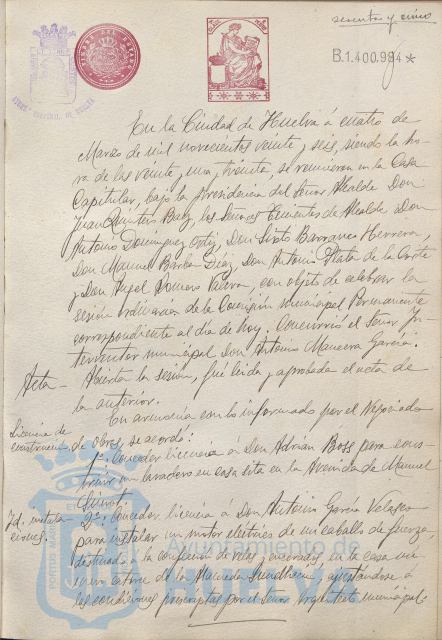 sesenta y cinco
B.1.400.984 *
En la Ciudad de Huelva á cuatro de
Marzo de mil novecientos veinte y seis, siendo la ho-
ra de las veinte, una y treinta, se reunieron en la Casa
Capitular, bajo la Presidencia del Señor Alcalde Don
Juan Quintero Baez, los Señores Tenientes de Alcalde Don
Antonio Dominguez Ortiz, Don Sixto Barranco Herrera,
Don Manuel Barba Diaz, Don Antonio Plata de la Corte
y Don Angel Romero Valera, con objeto de celebrar la
sesión ordinaria de la Comisión municipal Permanente
correspondiente al dia de hoy. Concurrió el Señor In-
terventor municipal Don Antonio Mancera Garcia.
Acta - Abierta la sesión, fué leida y aprobada el acta de
la anterior.
En armonia con lo informado por el Negociado
de obras, se acordó:
Licencia de
construccion
1º. Conceder licencia á Don Adrián Boss para cons-
truir un lavadero en casa sita en la Avenida de Manuel
Siurot.
Id. instala-
ciones.
2º. Conceder licencia á Don Antonio Garcia Velasco
para instalar un motor electrico de un caballo de fuerza,
destinado á la confección de en la casa nú-
mero catorce de la Sundheim, ajustándose á
las condiciones prescriptas por el Señor Arquitecto municipal.
Ayuntamiento de
HUELVA